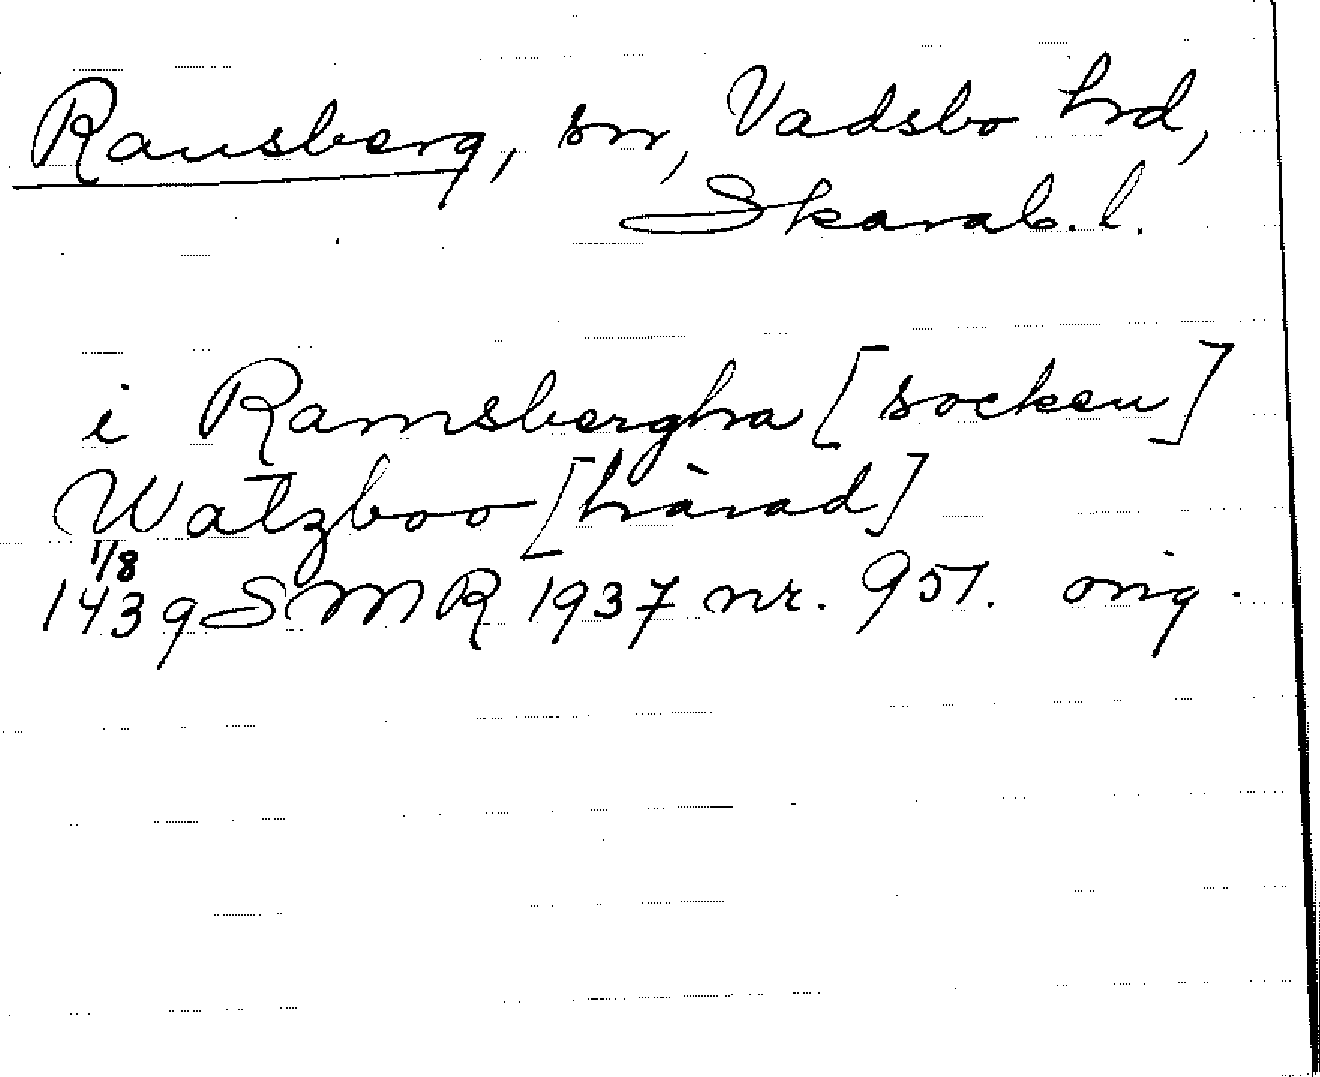 Ransberg, sn, Vadsbo hrd,
Skarab. l.
i Ramsbergha [socken]
Watzboo [härad]
1/8
1439 SMR 1937 nr. 951. orig.